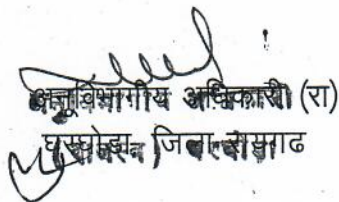 अनुविभागीय अधिकारी (रा)
जिला रायगढ